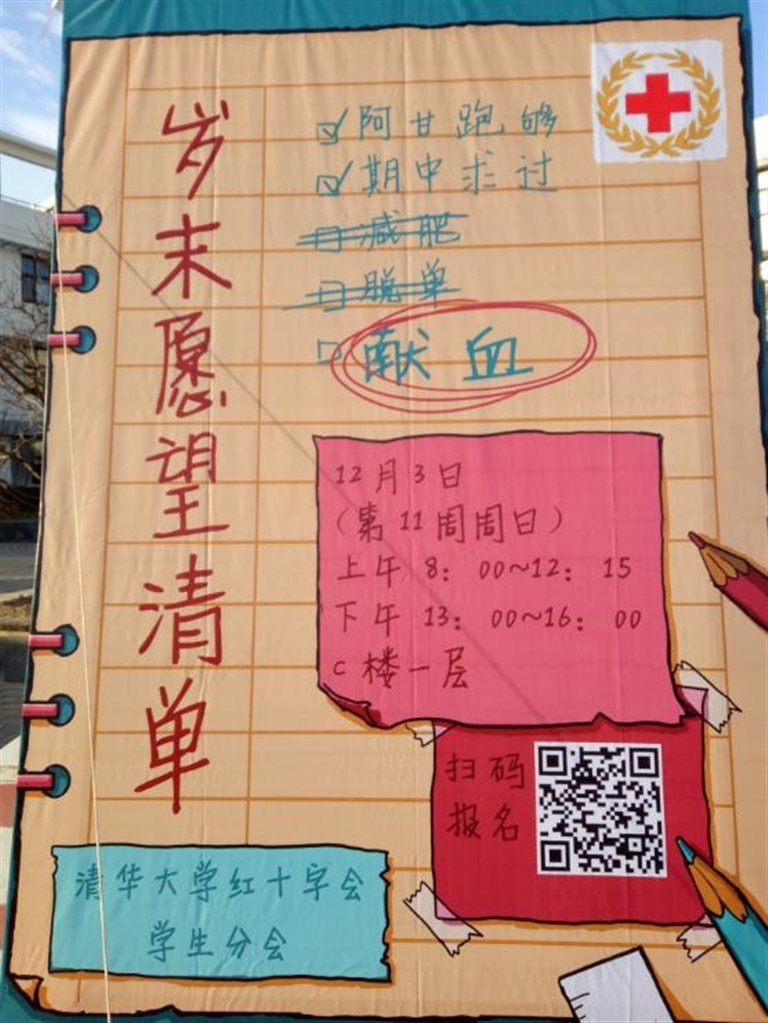 岁末愿望清单
阿甘跑够
期中求过
减肥
脱单
献血
12月3日
（第11周周日）
上午 8：00~12：15
下午 13：00~16：00
C楼一层
扫码
报名
清华大学红十字会
学生分会